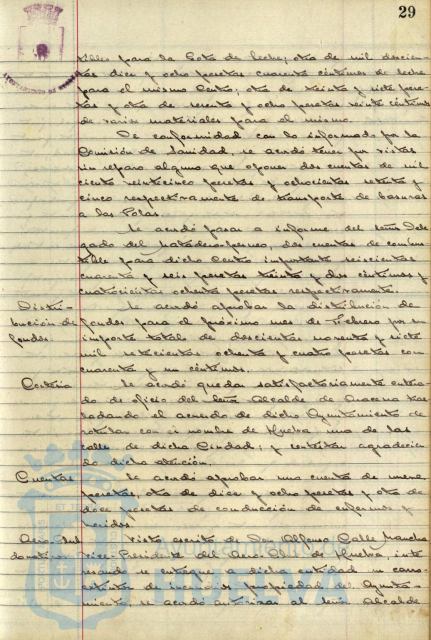 29
AYUNTAMIENTO DE HUELVA
tibles para la Gota de leche; otra de mil doscien-
tas diez y ocho pesetas cuarenta céntimos de leche
para el mismo Centro; otra de treinta y siete pese-
tas y otra de sesenta y ocho pesetas veinte céntimos
de varios materiales para el mismo.
De conformidad con lo informado por la
Comisión de Sanidad, se acordó tener por vistas
sin reparo alguno que oponer dos cuentas de mil
ciento veinticinco pesetas y ochocientas setenta y
cinco respectivamente de transporte de basuras
a las Pozas.
Se acordó pasar a informe del señor Dele-
gado del Matadero, dos cuentas de combus-
tible para dicho Centro importante seiscientas
cuarenta y seis pesetas treinta y dos céntimos y
cuatrocientas ochenta pesetas respectivamente.
Distri-
bución de
fondos.
Se acordó aprobar la distribución de
fondos para el próximo mes de Febrero por un
importe total de doscientas noventa y siete
mil setecientas ochenta y cuatro pesetas con
cuarenta y un céntimos.
Cortesía
Se acordó quedar satisfactoriamente entera-
do de oficio del señor Alcalde de Aracena tras-
ladando el acuerdo de dicho Ayuntamiento de
rotular con el nombre de Huelva una de las
calles de dicha Ciudad; y remitir agradecien-
do dicha atención.
Cuentas
Se acordó aprobar una cuenta de nueve
pesetas, otra de diez y ocho pesetas y otra de
doce pesetas de conducción de enfermos y
heridos
Aero-Club
donativo
Visto escrito de Don Alfonso Calle Mancha
Vice-Presidente del Aero-Club de Huelva, inte-
resando se entregue a dicha entidad un carro-
extintor de incendios propiedad del Ayunta-
miento, se acordó autorizar al señor Alcalde